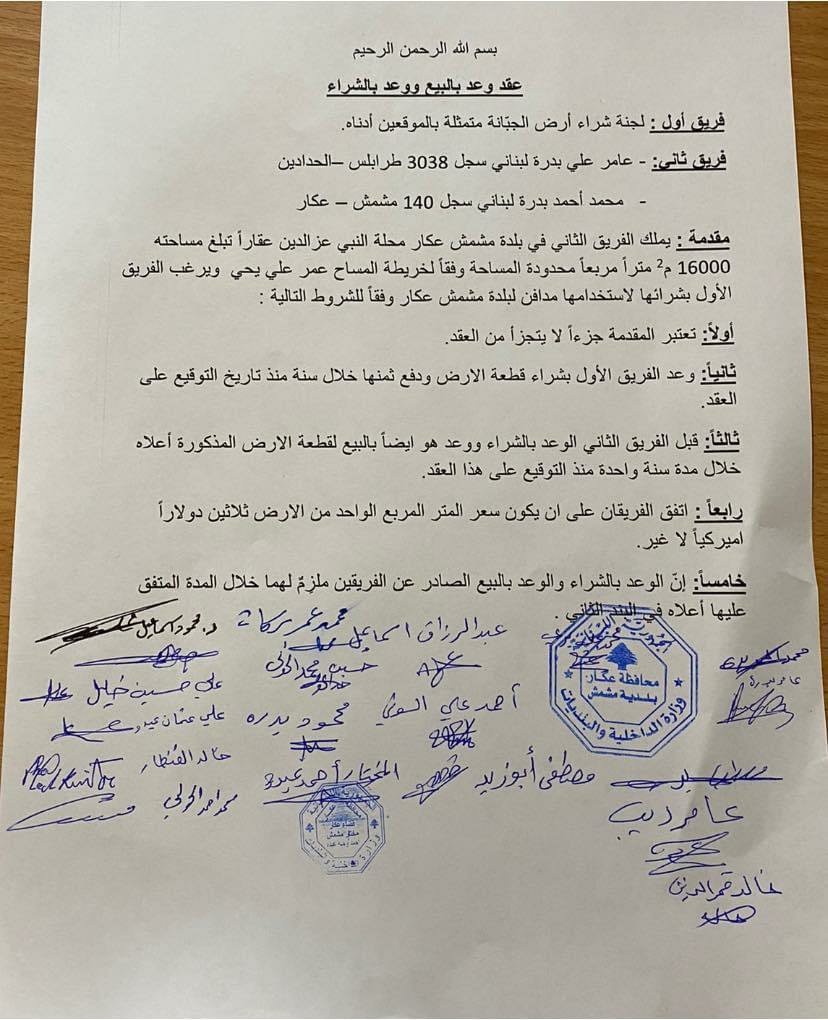 بسم الله الرحمن الرحيم
عقد وعد بالبيع ووعد بالشراء
فريق أول : لجنة شراء أرض الجبّانة متمثلة بالموقعين أدناه.
فريق ثاني: - عامر علي بدرة لبناني سجل 3038 طرابلس –الحدادين
- محمد أحمد بدرة لبناني سجل 140 مشمش – عكار
مقدمة : يملك الفريق الثاني في بلدة مشمش عكار محلة النبي عزالدين عقاراً تبلغ مساحته
16000 م² متراً مربعاً محدودة المساحة وفقاً لخريطة المساح عمر علي يحي ويرغب الفريق
الأول بشرائها لاستخدامها مدافن لبلدة مشمش عكار وفقاً للشروط التالية :
أولاً: تعتبر المقدمة جزءاً لا يتجزأ من العقد.
ثانياً: وعد الفريق الأول بشراء قطعة الارض ودفع ثمنها خلال سنة منذ تاريخ التوقيع على
العقد.
ثالثاً: قبل الفريق الثاني الوعد بالشراء ووعد هو ايضاً بالبيع لقطعة الارض المذكورة أعلاه
خلال مدة سنة واحدة منذ التوقيع على هذا العقد.
رابعاً : اتفق الفريقان على ان يكون سعر المتر المربع الواحد من الارض ثلاثين دولاراً
اميركياً لا غير.
خامساً: إنّ الوعد بالشراء والوعد بالبيع الصادر عن الفريقين ملزمٌ لهما خلال المدة المتفق
عليها أعلاه في البند الثاني .
محمد عمر بركات
د. محمود اسماعيل
عبد الرزاق اسماعيل
محافظة عكار
بلدية مشمش
وزارة الداخلية والبلديات
عامر بدرة
علي حسين خليل
أحمد علي
محمود بدره
علي عثمان
خالد القنطار
المختار أحمد عبيد
مصطفى أبوزيد
محمد احمد الحولي
عامر ديب
خالد قمرالدين